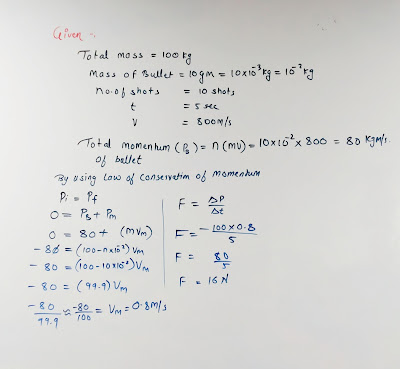 Given :-
Total mass = 100 kg
Mass of Bullet = 10gm = 10x10⁻³ kg = 10⁻² kg
no. of shots = 10 shots
t = 5 sec
V = 800m/s
Total momentum (P_B) = n (mv) = 10x10⁻² x 800 = 80 kgm/s.
of bullet
By using Law of Conservation of Momentum
Pi = Pf
0 = P_B + Pm
0 = 80 + (mVm)
- 80 = (100-nx10⁻²) Vm
- 80 = (100-10x10⁻²) Vm
- 80 = (99.9) Vm
-80/99.9 ≈ -80/100 = Vm = 0.8m/s
F = ΔP/Δt
F = -100x0.8/5
F = 80/5
F = 16 N